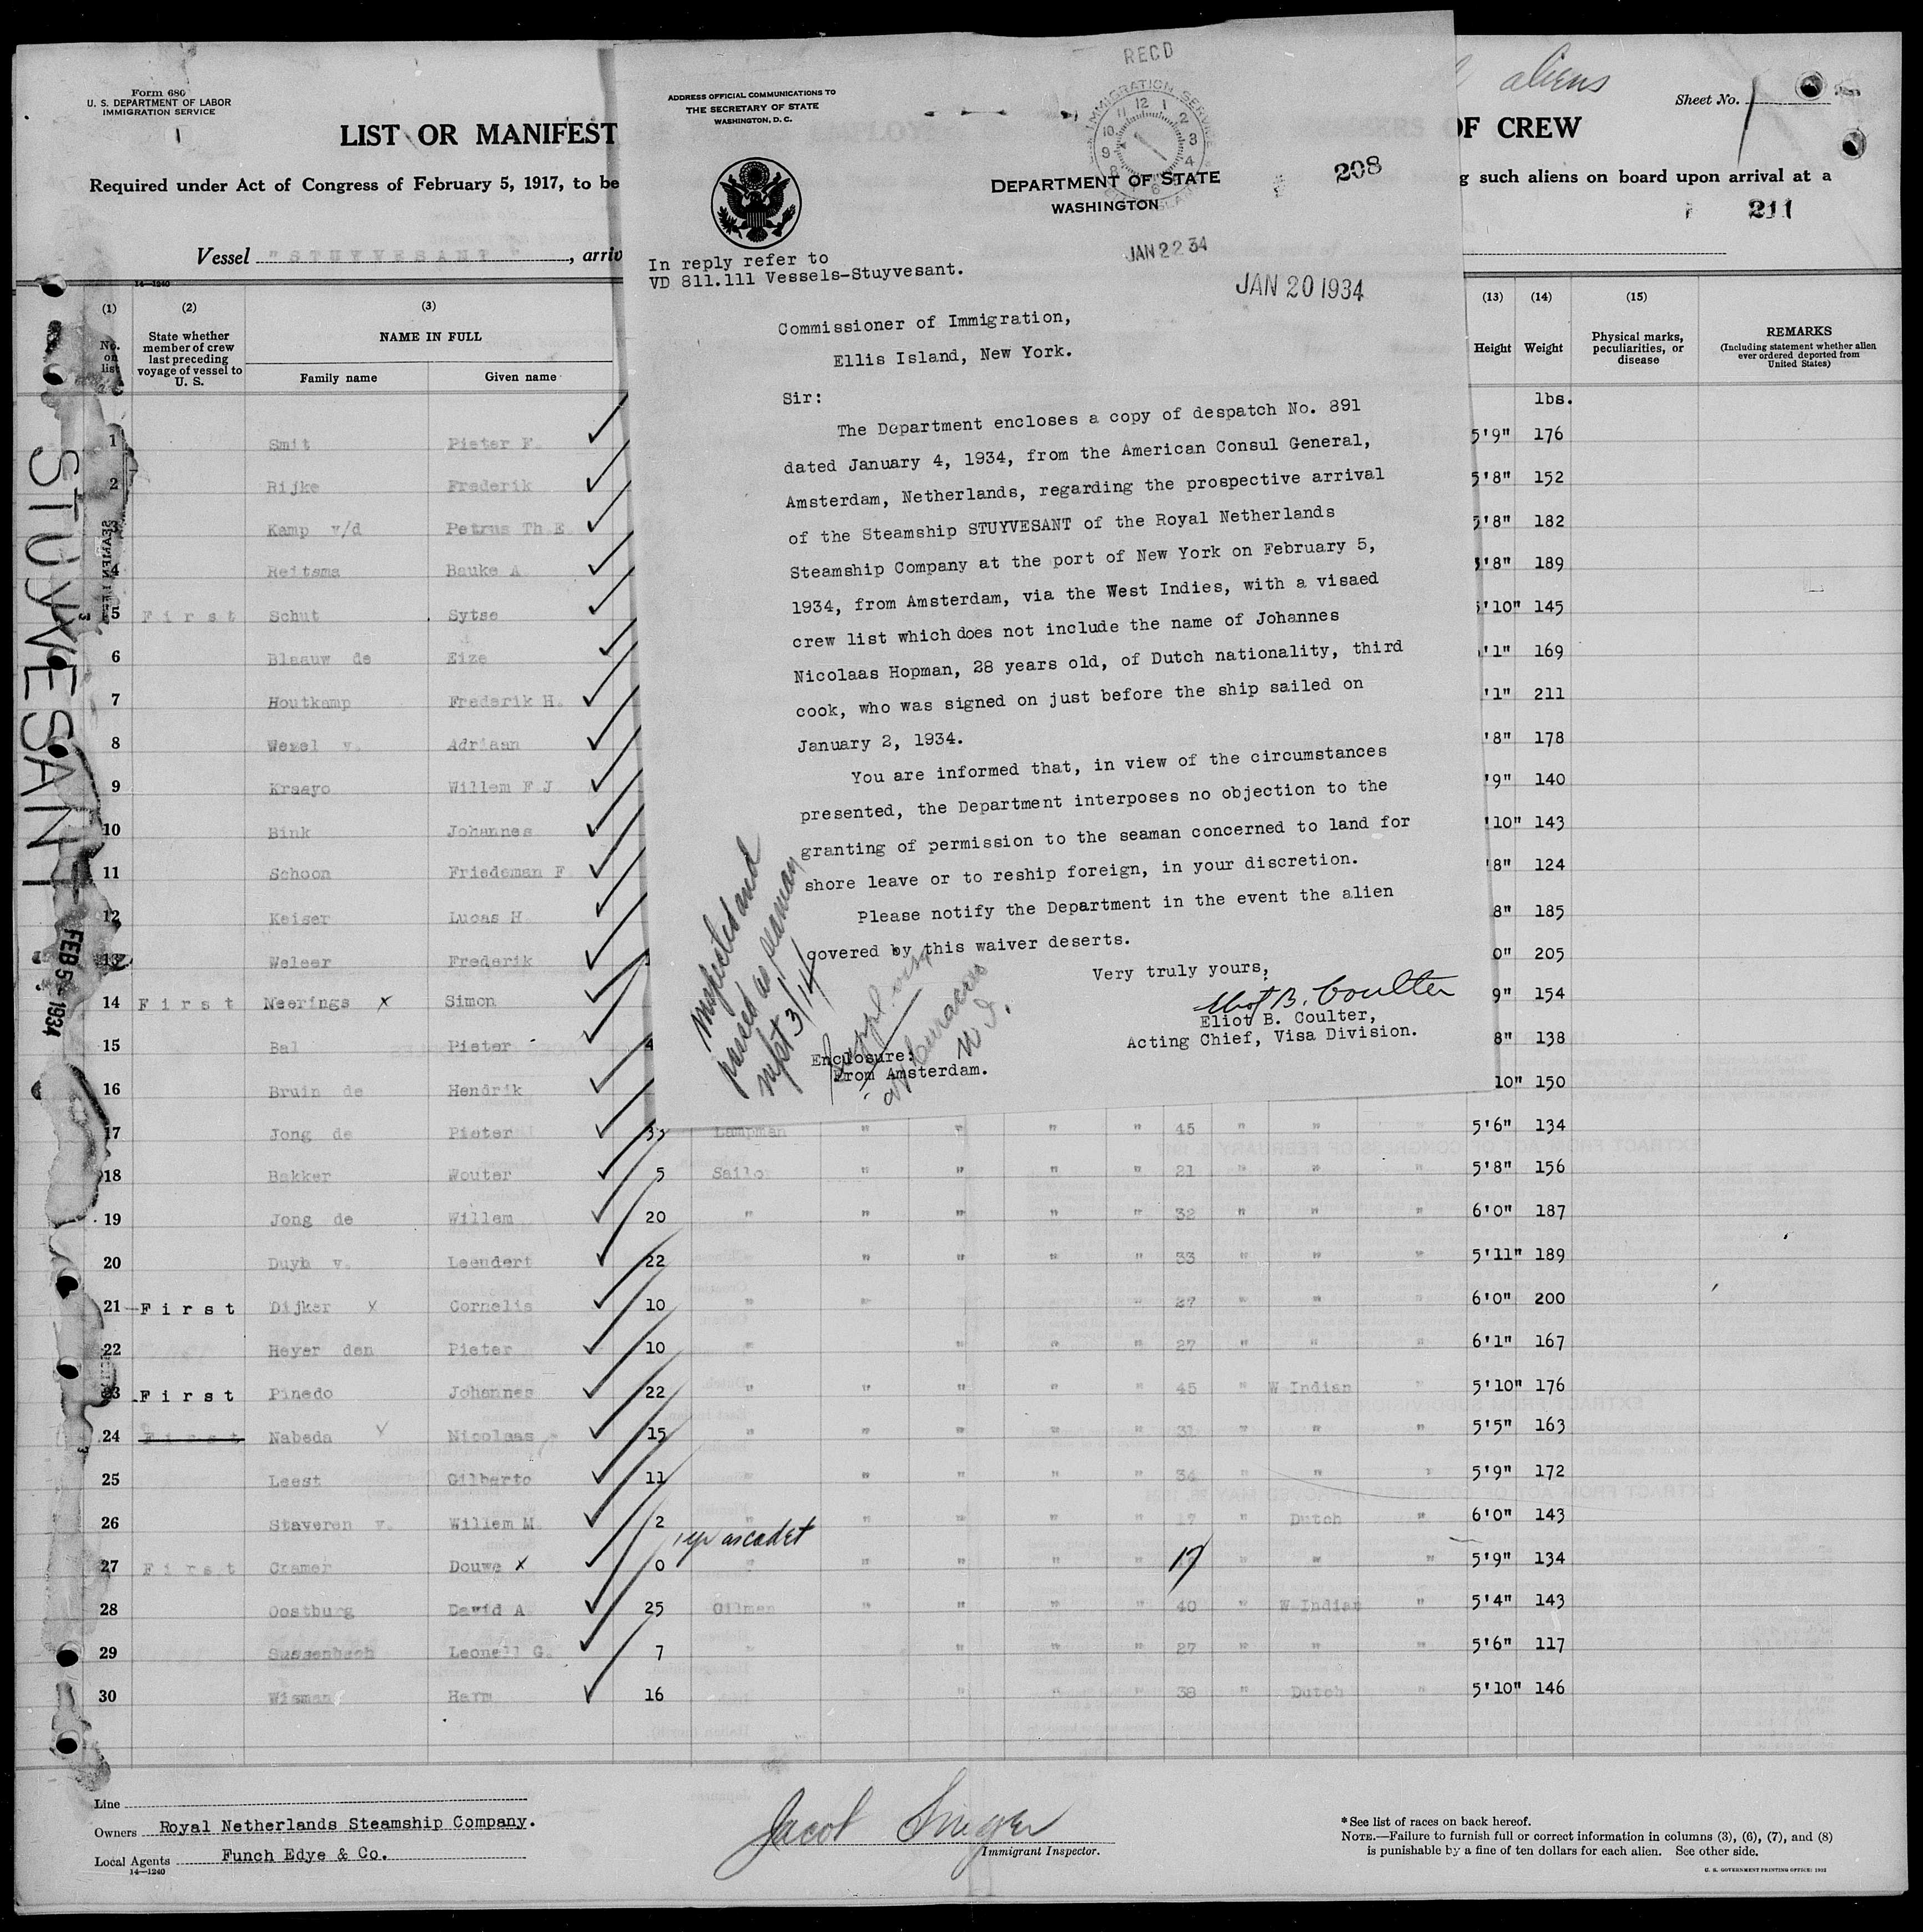 Form 680
U. S. DEPARTMENT OF LABOR
IMMIGRATION SERVICE
LIST OR MANIFEST
OF CREW
aliens
Sheet No. 1
Required under Act of Congress of February 5, 1917, to be
g such aliens on board upon arrival at a
211
Vessel "STUYVESANT", arriv
14—1240
RECD
IMMIGRATION SERVICE
ADDRESS OFFICIAL COMMUNICATIONS TO
THE SECRETARY OF STATE
WASHINGTON, D. C.
DEPARTMENT OF STATE
WASHINGTON
208
JAN 22 34
JAN 20 1934
In reply refer to
VD 811.111 Vessels-Stuyvesant.
Commissioner of Immigration,
Ellis Island, New York.
Sir:
The Department encloses a copy of despatch No. 891
dated January 4, 1934, from the American Consul General,
Amsterdam, Netherlands, regarding the prospective arrival
of the Steamship STUYVESANT of the Royal Netherlands
Steamship Company at the port of New York on February 5,
1934, from Amsterdam, via the West Indies, with a visaed
crew list which does not include the name of Johannes
Nicolaas Hopman, 28 years old, of Dutch nationality, third
cook, who was signed on just before the ship sailed on
January 2, 1934.
You are informed that, in view of the circumstances
presented, the Department interposes no objection to the
granting of permission to the seaman concerned to land for
shore leave or to reship foreign, in your discretion.
Please notify the Department in the event the alien
covered by this waiver deserts.
Very truly yours,
Eliot B. Coulter
Eliot B. Coulter,
Acting Chief, Visa Division.
Enclosure:
From Amsterdam.
inspected and
passed as seaman
at Curacao
W. I.
STUYVESANT
FEB 5 - 1934
(1) (2) (3) (13) (14) (15)
No. on list
State whether member of crew last preceding voyage of vessel to U. S.
NAME IN FULL
Family name Given name
Height Weight
Physical marks, peculiarities, or disease
REMARKS
(Including statement whether alien ever ordered deported from United States)
lbs.
1 Smit Pieter F. 5'9" 176
2 Rijke Frederik 5'8" 152
3 Kamp v/d Petrus Th E. 5'8" 182
4 Reitsma Bauke A 5'8" 189
5 First Schut Sytse 5'10" 145
6 Blaauw de Eize '1" 169
7 Houtkamp Frederik H. '1" 211
8 Wezel v. Adriaan '8" 178
9 Kraayo Willem F J '9" 140
10 Bink Johannes '10" 143
11 Schoon Friedeman F '8" 124
12 Keiser Lucas H 8" 185
13 Weleer Frederik 0" 205
14 First Neerings x Simon 9" 154
15 Bal Pieter 4 8" 138
16 Bruin de Hendrik 10" 150
17 Jong de Pieter 33 Lampman " " " " 45 " " " 5'6" 134
18 Bakker Wouter 5 Sailo " " " " 21 " " " 5'8" 156
19 Jong de Willem 20 " " " " " 32 " " " 6'0" 187
20 Duyh v. Leendert 22 " " " " 33 " " " 5'11" 189
21 First Dijker x Cornelis 10 " " " " " 27 " " " 6'0" 200
22 Heyer den Pieter 10 " " " " " 27 " " " 6'1" 167
23 First Pinedo Johannes 22 " " " " " 45 " W Indian " 5'10" 176
24 First Nabeda Nicolaas 15 " " " " " 31 " " " 5'5" 163
25 Leest Gilberto 11 " " " " " 34 " " " 5'9" 172
26 Staveren v. Willem M. 2 " " " " " 17 " Dutch " 6'0" 143
1 yr as cadet
27 First Cramer Douwe x 0 " " " " " 17 " " " 5'9" 134
28 Oostburg David A 25 Oilman " " " " 40 " W Indian " 5'4" 143
29 Sussenbach Leonell G. 7 " " " " 27 " " " 5'6" 117
30 Wisman Harm 16 " " " " " 38 " Dutch " 5'10" 146
Line
Owners Royal Netherlands Steamship Company.
Local Agents Funch Edye & Co.
14—1240
Jacob Singer
Immigrant Inspector.
* See list of races on back hereof.
NOTE.—Failure to furnish full or correct information in columns (3), (6), (7), and (8)
is punishable by a fine of ten dollars for each alien. See other side.
U. S. GOVERNMENT PRINTING OFFICE: 1932